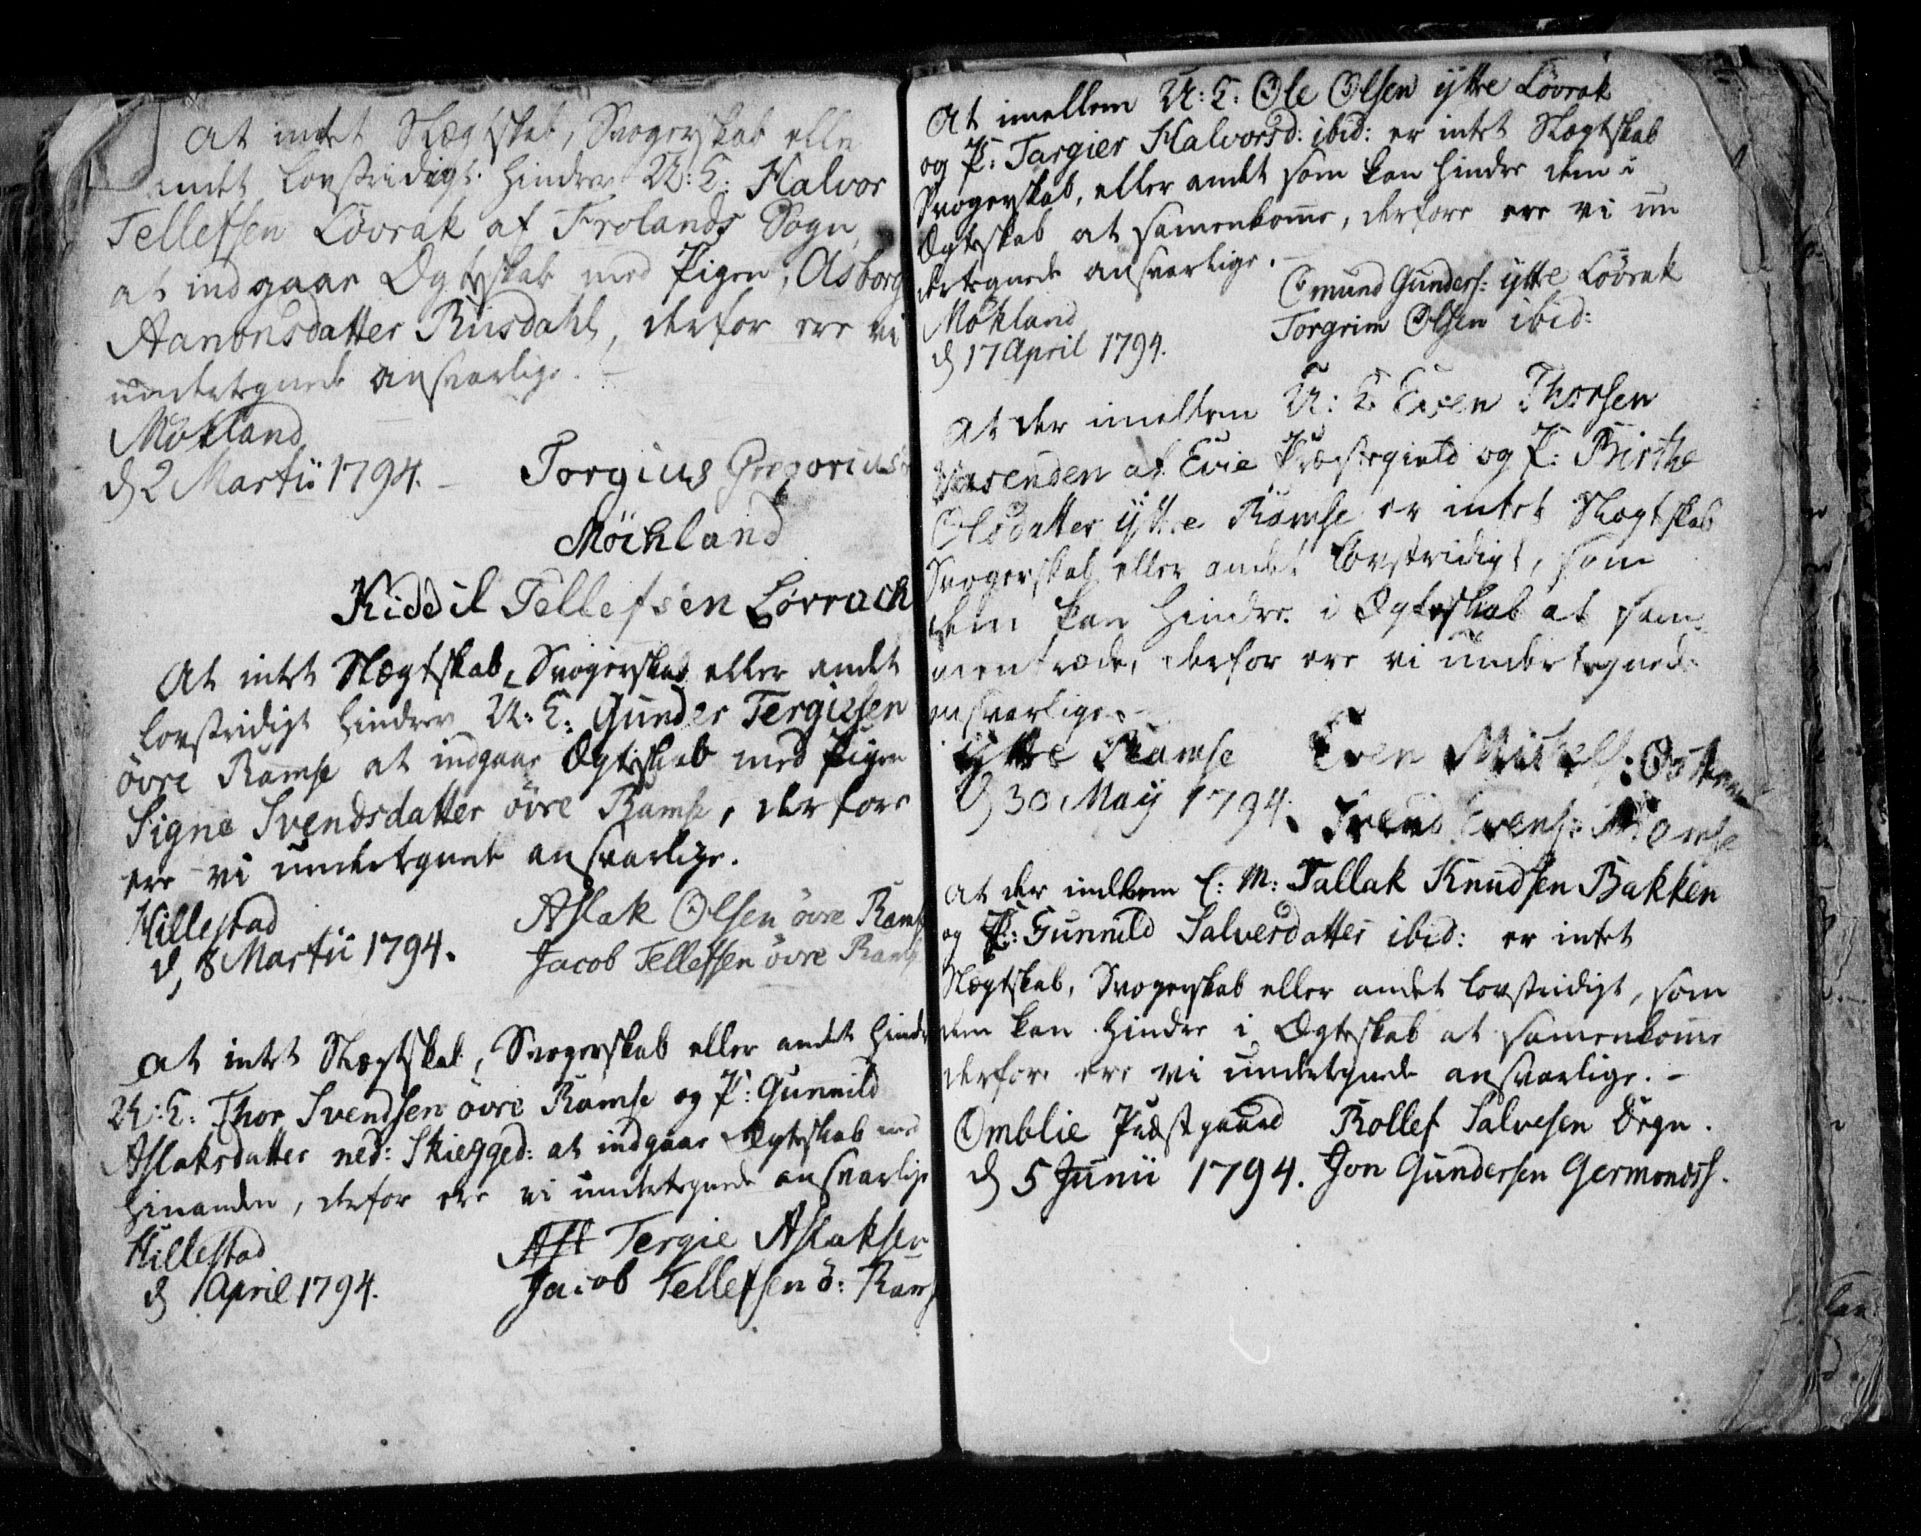 At intet Slægtskab, Svogerskab eller
andet lovstridigt hindrer U: K: Halvor
Tellefsen Løvrak af Frolands Sogn,
at indgaae Ægteskab med Pigen, Asborg
Aanonsdatter Riisdahl, derfor ere vi
undertegnede ansvarlige. –
Mökland
d 2 Martii 1794. –
Torgius Gregorius
Möchland
Kiddil Tellefsen Lørrach
At intet Slægtskab, Svogerskab eller andet
lovstridigt hindrer U: K: Gunder Tergiesen
övre Ramse at indgaae Ægteskab med Pigen
Signe Svendsdatter övre Ramse, derfore
ere vi undertegnede ansvarlige.
Hillestad
d, 8 Martii 1794.
Aslak Olsen övre Rams
Jacob Tellefsen övre Rams
At intet Slægtskab, Svogerskab eller andet hindr
U: K: Thor Svendsen övre Ramse og P: Gunnild
Aslaksdatter ned: Skiegged: at indgaae Ægteskab med
hinanden, derfor ere vi undertegnede ansvarlige
Hillestad
d 1 April 1794.
Asl Tergie Aslaksen
Jacob Tellefsen ö: Rams
At imellem U: K: Ole Olsen ytre Løvrak
og P: Targier Halvorsd: ibid: er intet Slægtskab
Svogerskab, eller andet som kan hindre dem i
Ægteskab at samenkome, derfore ere vi un
dertegnede ansvarlige. –
Mökland
d 17 April 1794.
Omund Gunders: ytre Løvrak
Torgrim Olsen ibid:
At der imellem U: K: Even Thorsen
af Evie Præstegield og P: Birthe
Olsdatter ytre Ramse er intet Slægtskab
Svogerskab eller andet lovstridigt, som
dem kan hindre i Ægteskab at sam-
mentræde, derfor ere vi undertegnede
ansvarlige. –
ytre Ramse
d 30 May 1794.
Even Mikels:
Svend Evens: Ramse
At der imellem E: M: Tallak Knudsen Bakken
og P: Gunnild Salvesdatter ibid: er intet
Slægtskab, Svogerskab eller andet lovstridigt, som
dem kan hindre i Ægteskab at samenkome
derfore ere vi undertegnede ansvarlige. –
Omblie Præstgaard
d 5 Junii 1794.
Rollef Salvesen Degn.
Jon Gundersen Germondss.